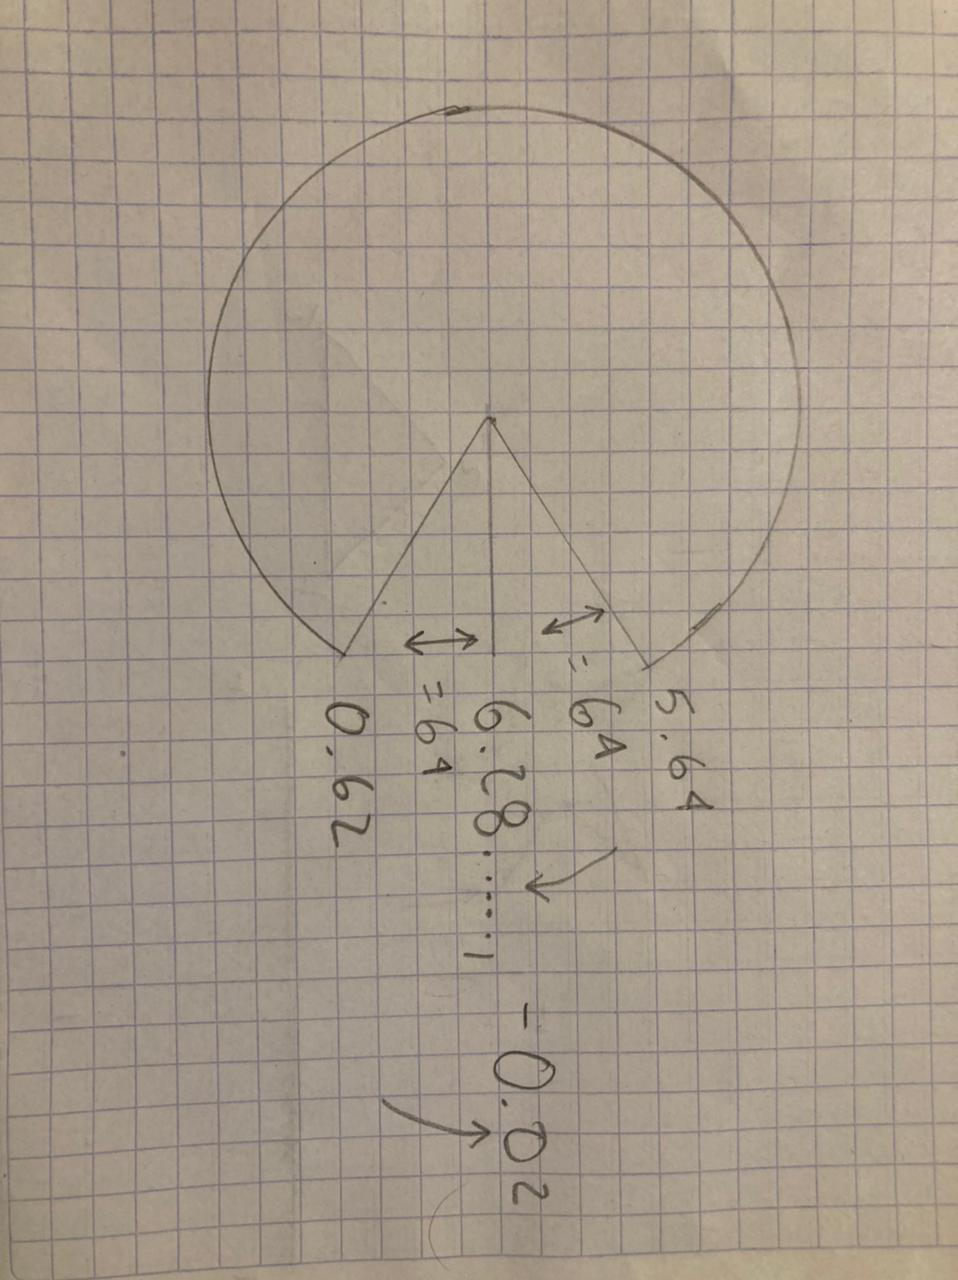 5.64
= 64
6.28....., -0.02
= 64
0.62